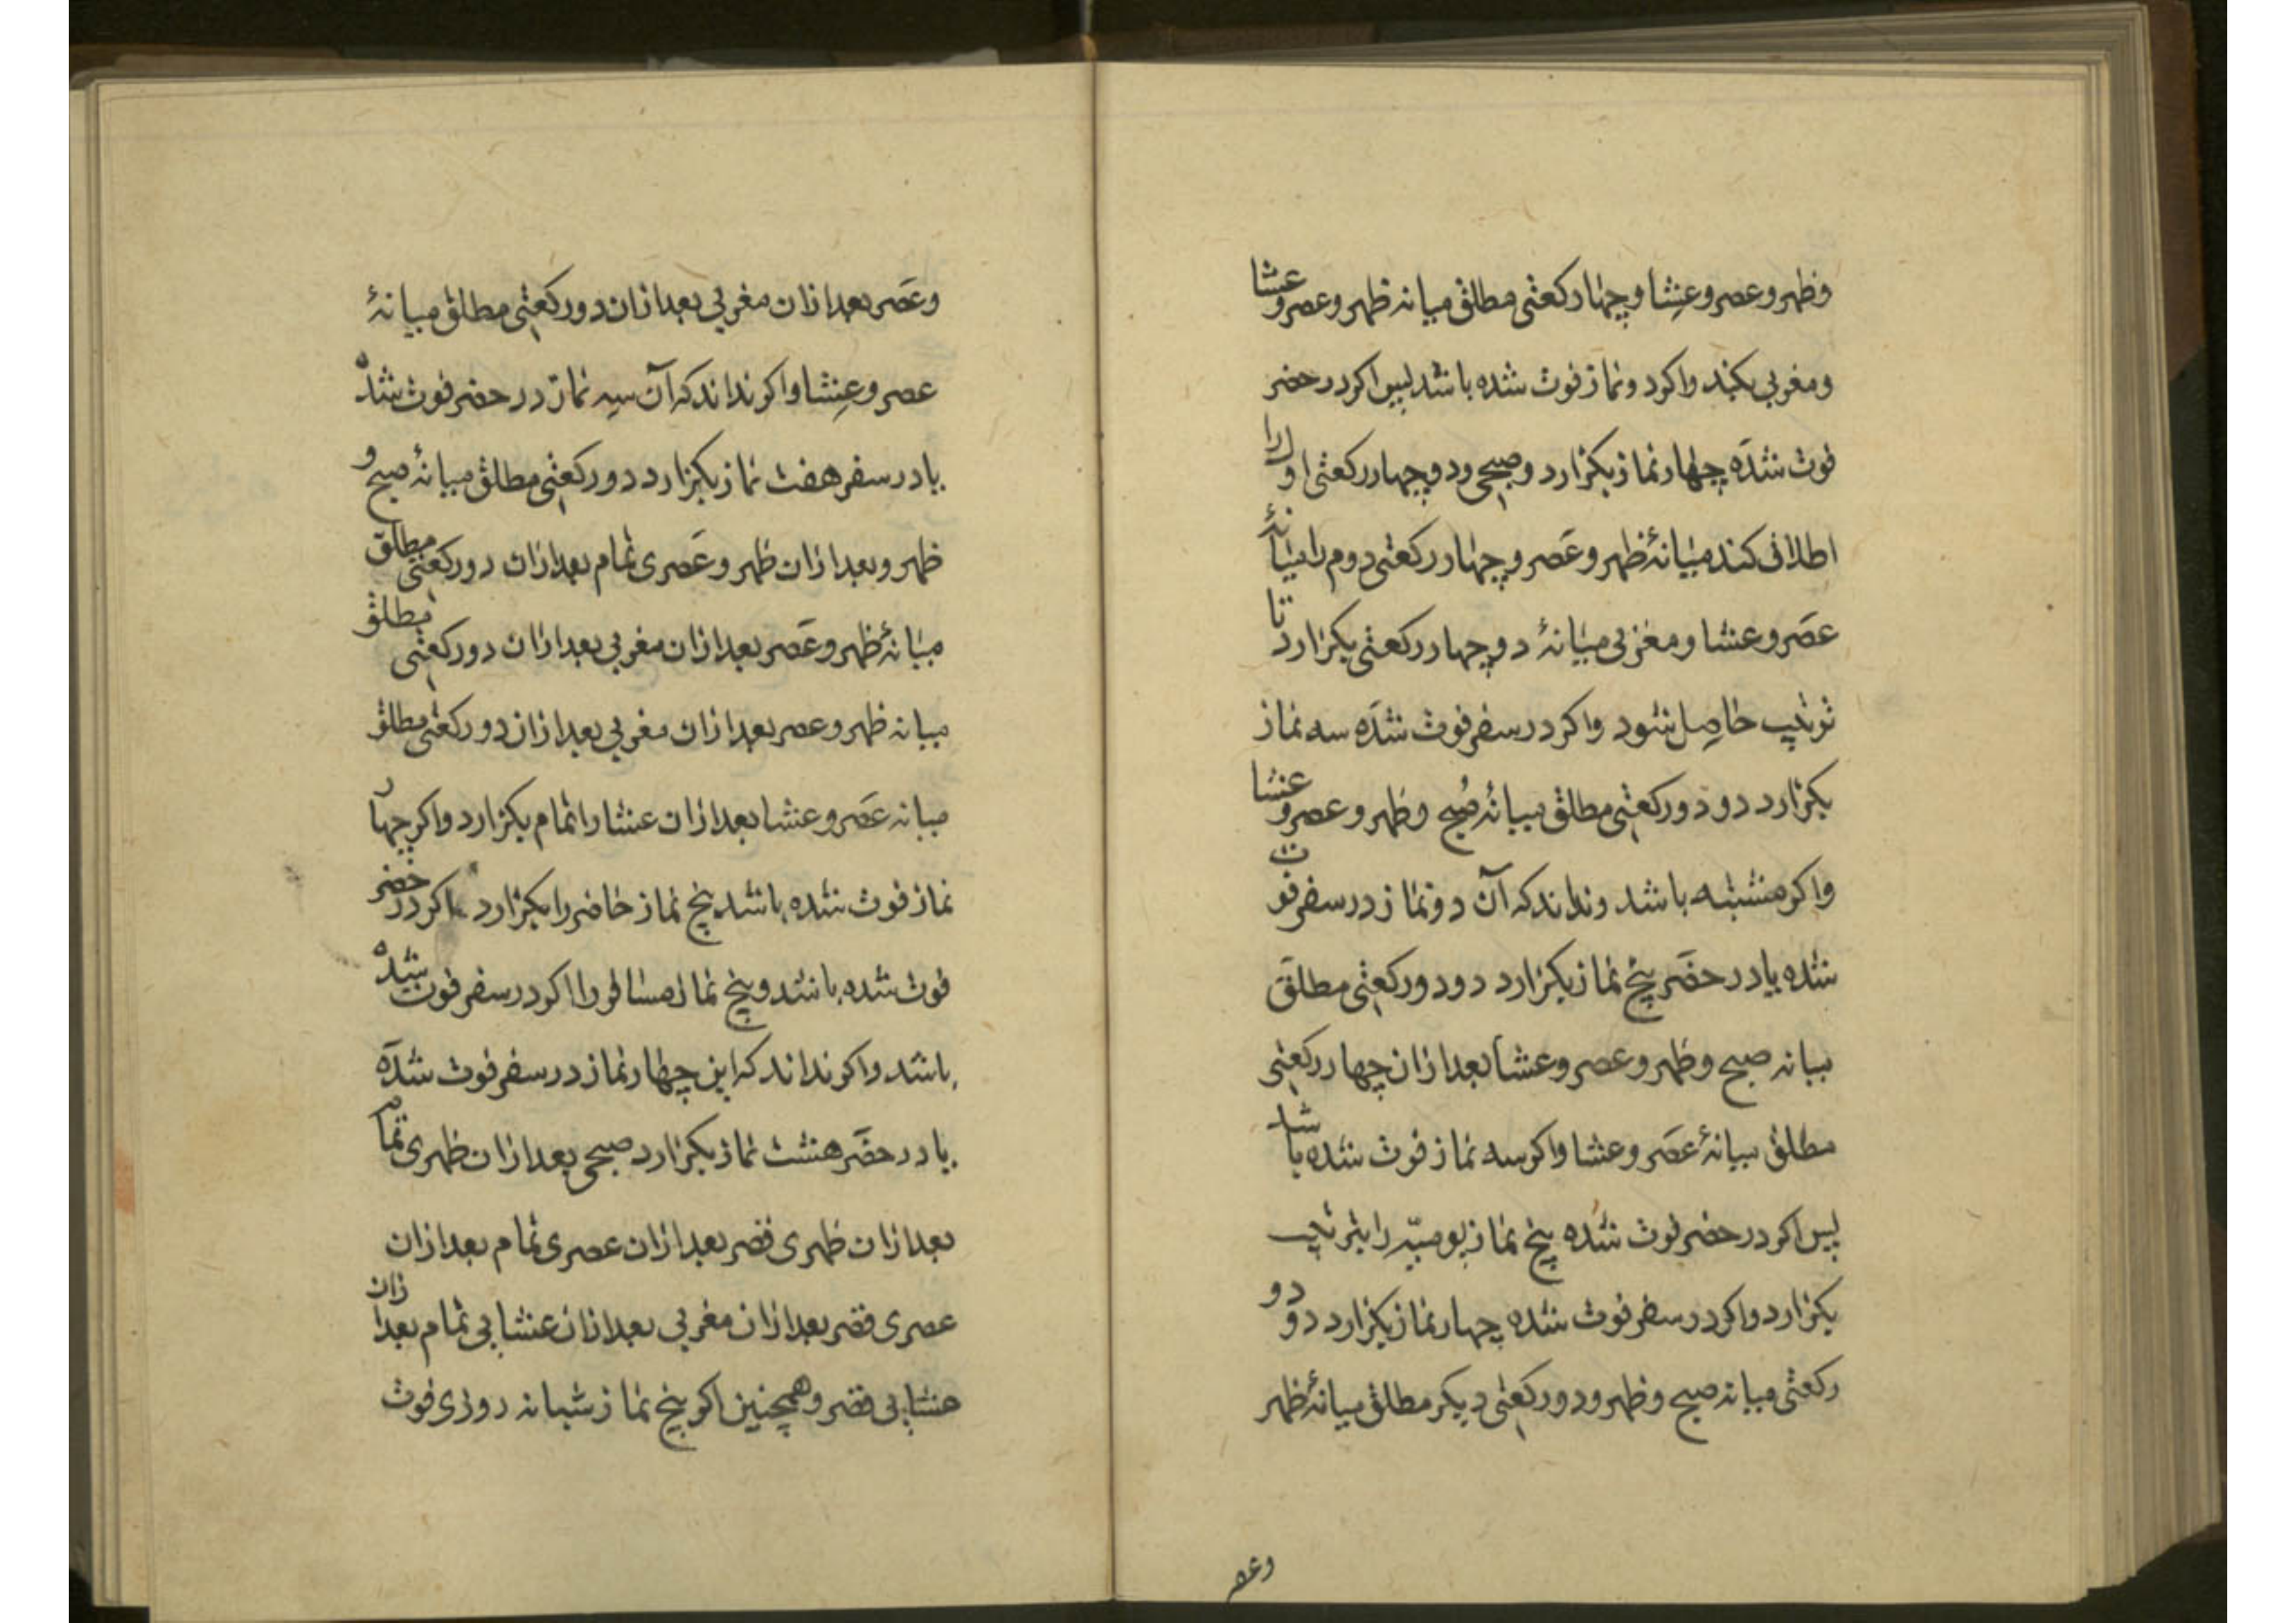 وظهر و عصر و عشا و چهار ركعتی مطلق میانه ظهر و عصر و عشا
و مغربی بكند و اكر دو نماز فوت شده باشد پس اكر در حضر
فوت شده چهار نماز بكزارد و صبحی و دو چهار ركعتی اول را
اطلاق كند میانهٔ ظهر و عصر و چهار ركعتی دوم را میانهٔ
عصر و عشا و مغربی میانهٔ دو چهار ركعتی بكزارد تا
ترتیب حاصل شود و اكر در سفر فوت شده سه نماز
بكزارد دو دو ركعتی مطلق میانهٔ صبح و ظهر و عصر و عشا
و اكر مشتبه باشد و نداند كه آن دو نماز در سفر فوت
شده یا در حضر پنج نماز بكزارد دو دو ركعتی مطلق
میانه صبح و ظهر و عصر و عشا بعد ازان چهار ركعتی
مطلق میانهٔ عصر و عشا و اكر سه نماز فوت شده باشد
پس اكر در حضر فوت شده پنج نماز یومیّه را بترتیب
بكزارد و اكر در سفر فوت شده چهار نماز بكزارد دو دو
ركعتی میانه صبح و ظهر و دو ركعتی دیكر مطلق میانهٔ ظهر
وعصر
و عصر بعد ازان مغربی بعد ازان دو ركعتی مطلق میانهٔ
عصر و عشا و اكر نداند كه آن سه نماز در حضر فوت شده
یا در سفر هفت نماز بكزارد دو ركعتی مطلق میانهٔ صبح و
ظهر و بعد ازان ظهر و عصری تمام بعد ازان دو ركعتی مطلق
میانهٔ ظهر و عصر بعد ازان مغربی بعد ازان دو ركعتی مطلق
میانه ظهر و عصر بعد ازان مغربی بعد ازان دو ركعتی مطلق
میانه عصر و عشا بعد ازان عشا را تمام بكزارد و اكر چهار
نماز فوت شده باشد پنج نماز حاضر را بكزارد اكر در حضر
فوت شده باشد و پنج نماز مسافر را اكر در سفر فوت شده
باشد و اكر نداند كه این چهار نماز در سفر فوت شده
یا در حضر هشت نماز بكزارد صبحی بعد ازان ظهری تمام
بعد ازان ظهری قصر بعد ازان عصری تمام بعد ازان
عصری قصر بعد ازان مغربی بعد ازان عشایی تمام بعد ازان
عشایی قصر و همچنین اكر پنج نماز شبانه روزی فوت